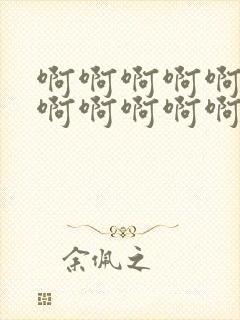 啊啊啊啊啊
啊啊啊啊啊
余佩之